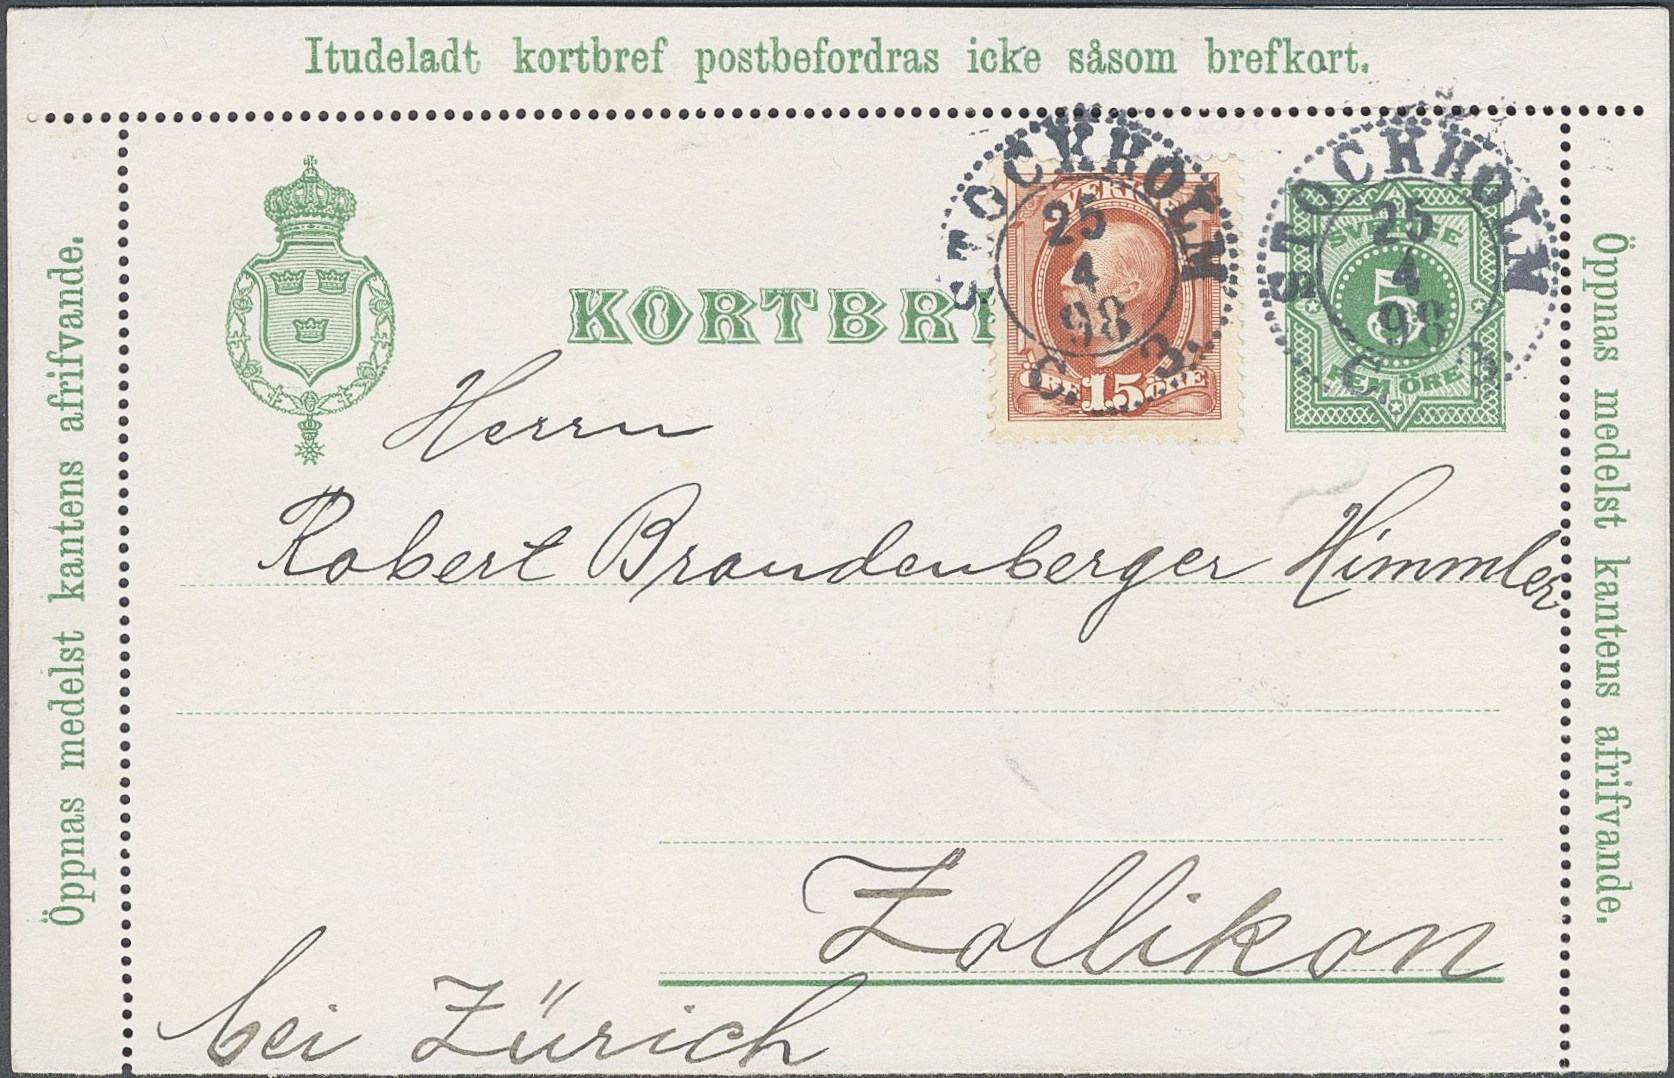 Itudeladt kortbref postbefordras icke såsom brefkort.
Öppnas medelst kantens afrifvande.
KORTBRE
SVERIGE
15
ÖRE ÖRE
STOCKHOLM
25
4
98
C. 3.
SVERIGE
5
FEM ÖRE
STOCKHOLM
25
4
98
C. 3.
Herrn
Robert Brandenberger Himmler
Zollikon
bei Zürich
Öppnas medelst kantens afrifvande.